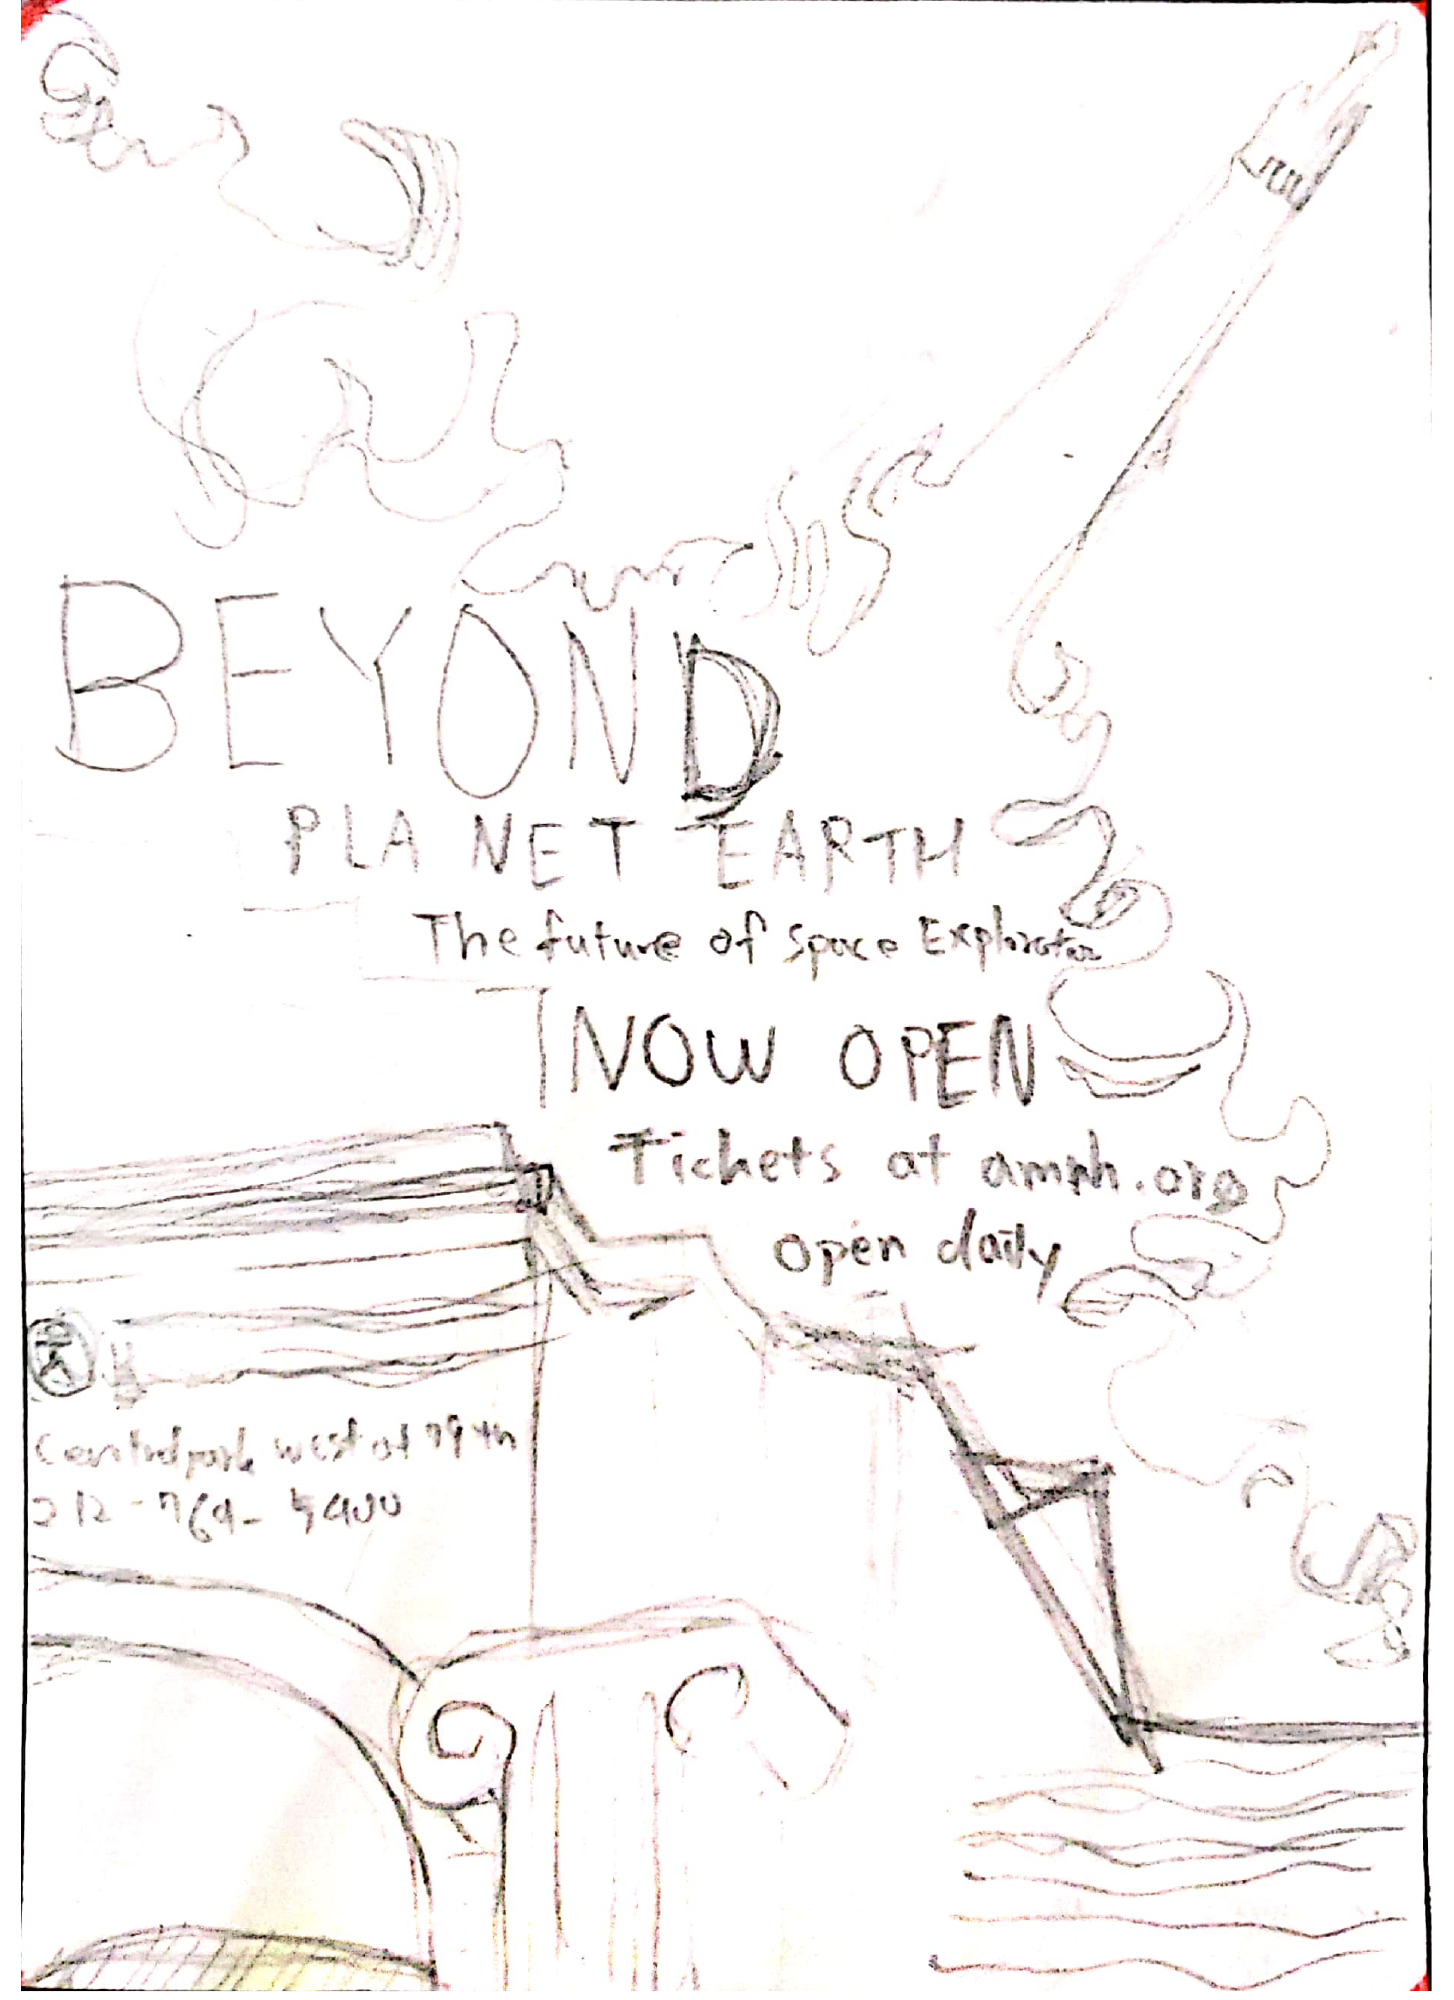 BEYOND
PLANET EARTH
The future of space Exploration
NOW OPEN
Tickets at amnh.org
open daily
Central park west at 79th
212-769-5400